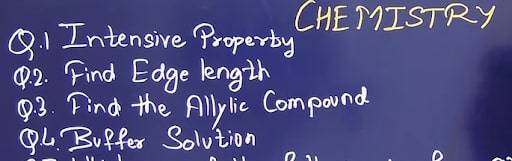 CHEMISTRY
Q.1 Intensive Property
Q.2. Find Edge length
Q.3. Find the Allylic Compound
Q4. Buffer Solution